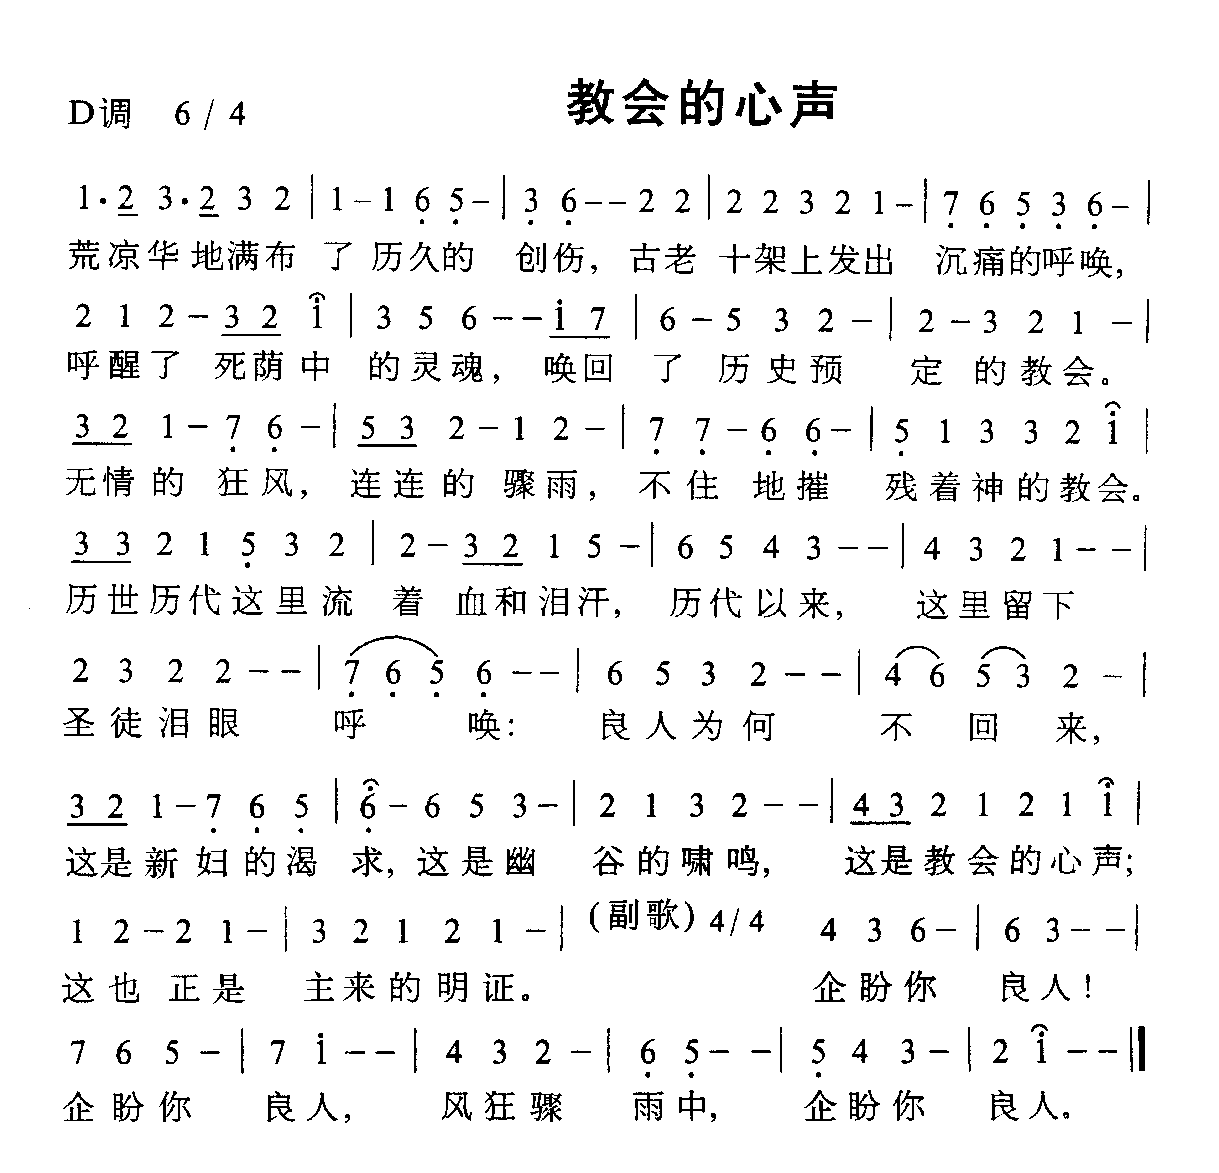 教会的心声
D调 6 / 4
1·2 3·2 3 2 | 1 - 1 6 5 - | 3 6 - - 2 2 | 2 2 3 2 1 - | 7 6 5 3 6 - |
荒凉华地满布 了 历久的 创伤, 古老 十架上发出 沉痛的呼唤,
2 1 2 - 3 2 i | 3 5 6 - - i 7 | 6 - 5 3 2 - | 2 - 3 2 1 - |
呼醒了 死荫中 的灵魂, 唤回 了 历史预 定 的教会。
3 2 1 - 7 6 - | 5 3 2 - 1 2 - | 7 7 - 6 6 - | 5 1 3 3 2 i |
无情的 狂风, 连连的 骤雨, 不住 地摧 残着神的教会。
3 3 2 1 5 3 2 | 2 - 3 2 1 5 - | 6 5 4 3 - - | 4 3 2 1 - - |
历世历代这里流 着 血和泪汗, 历代以来, 这里留下
2 3 2 2 - - | 7 6 5 6 - - | 6 5 3 2 - - | 4 6 5 3 2 - |
圣徒泪眼 呼 唤: 良人为何 不 回 来,
3 2 1 - 7 6 5 | 6 - 6 5 3 - | 2 1 3 2 - - | 4 3 2 1 2 1 i |
这是新妇的渴 求, 这是幽 谷的啸鸣, 这是教会的心声;
1 2 - 2 1 - | 3 2 1 2 1 - | (副歌) 4/4 4 3 6 - | 6 3 - - |
这也 正是 主来的明证。 企盼你 良人!
7 6 5 - | 7 i - - | 4 3 2 - | 6 5 - - | 5 4 3 - | 2 i - - ||
企盼你 良人, 风狂骤 雨中, 企盼你 良人。